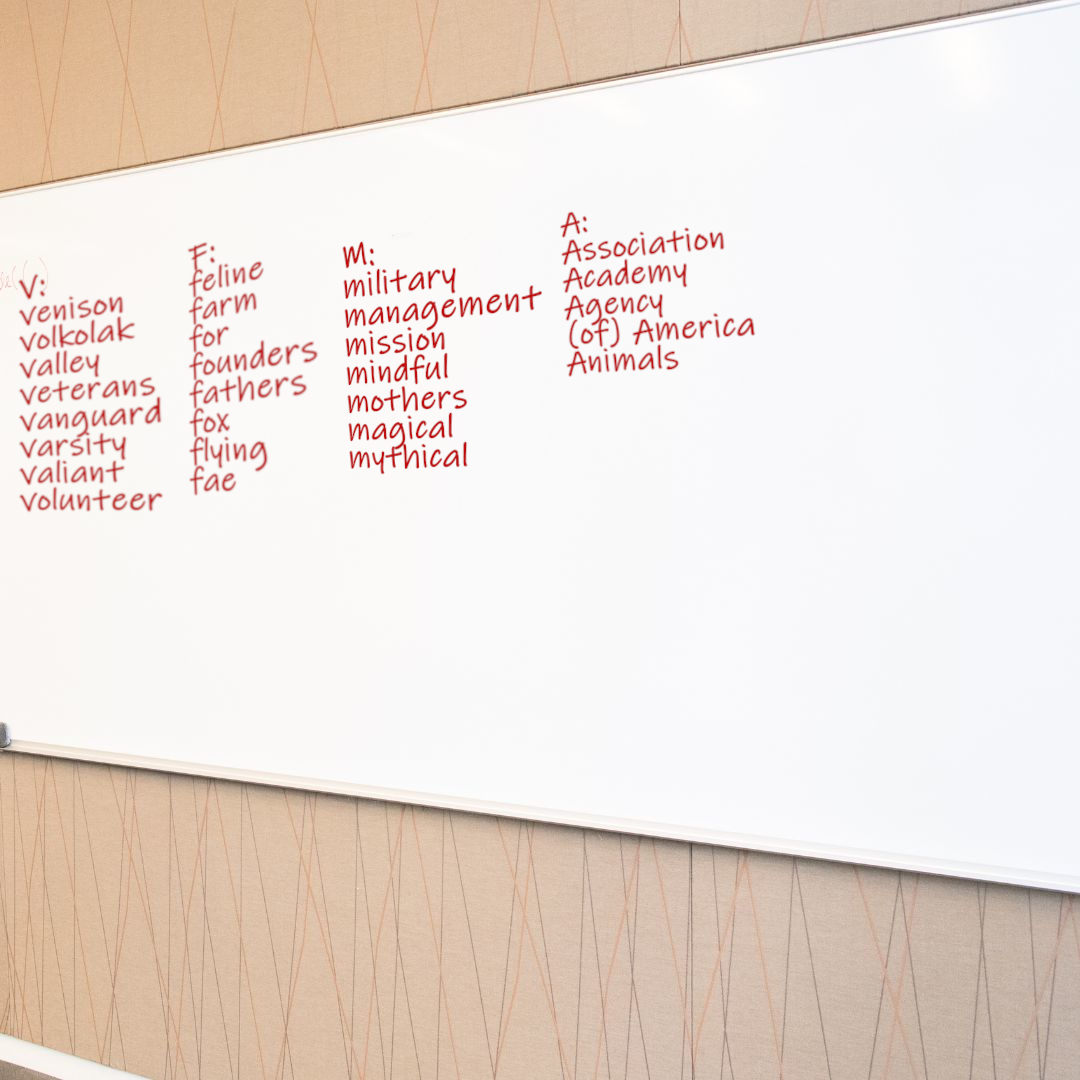 V:
venison
volkolak
valley
veterans
vanguard
varsity
valiant
volunteer
F:
feline
farm
for
founders
fathers
fox
flying
fae
M:
military
management
mission
mindful
mothers
magical
mythical
A:
Association
Academy
Agency
(of) America
Animals